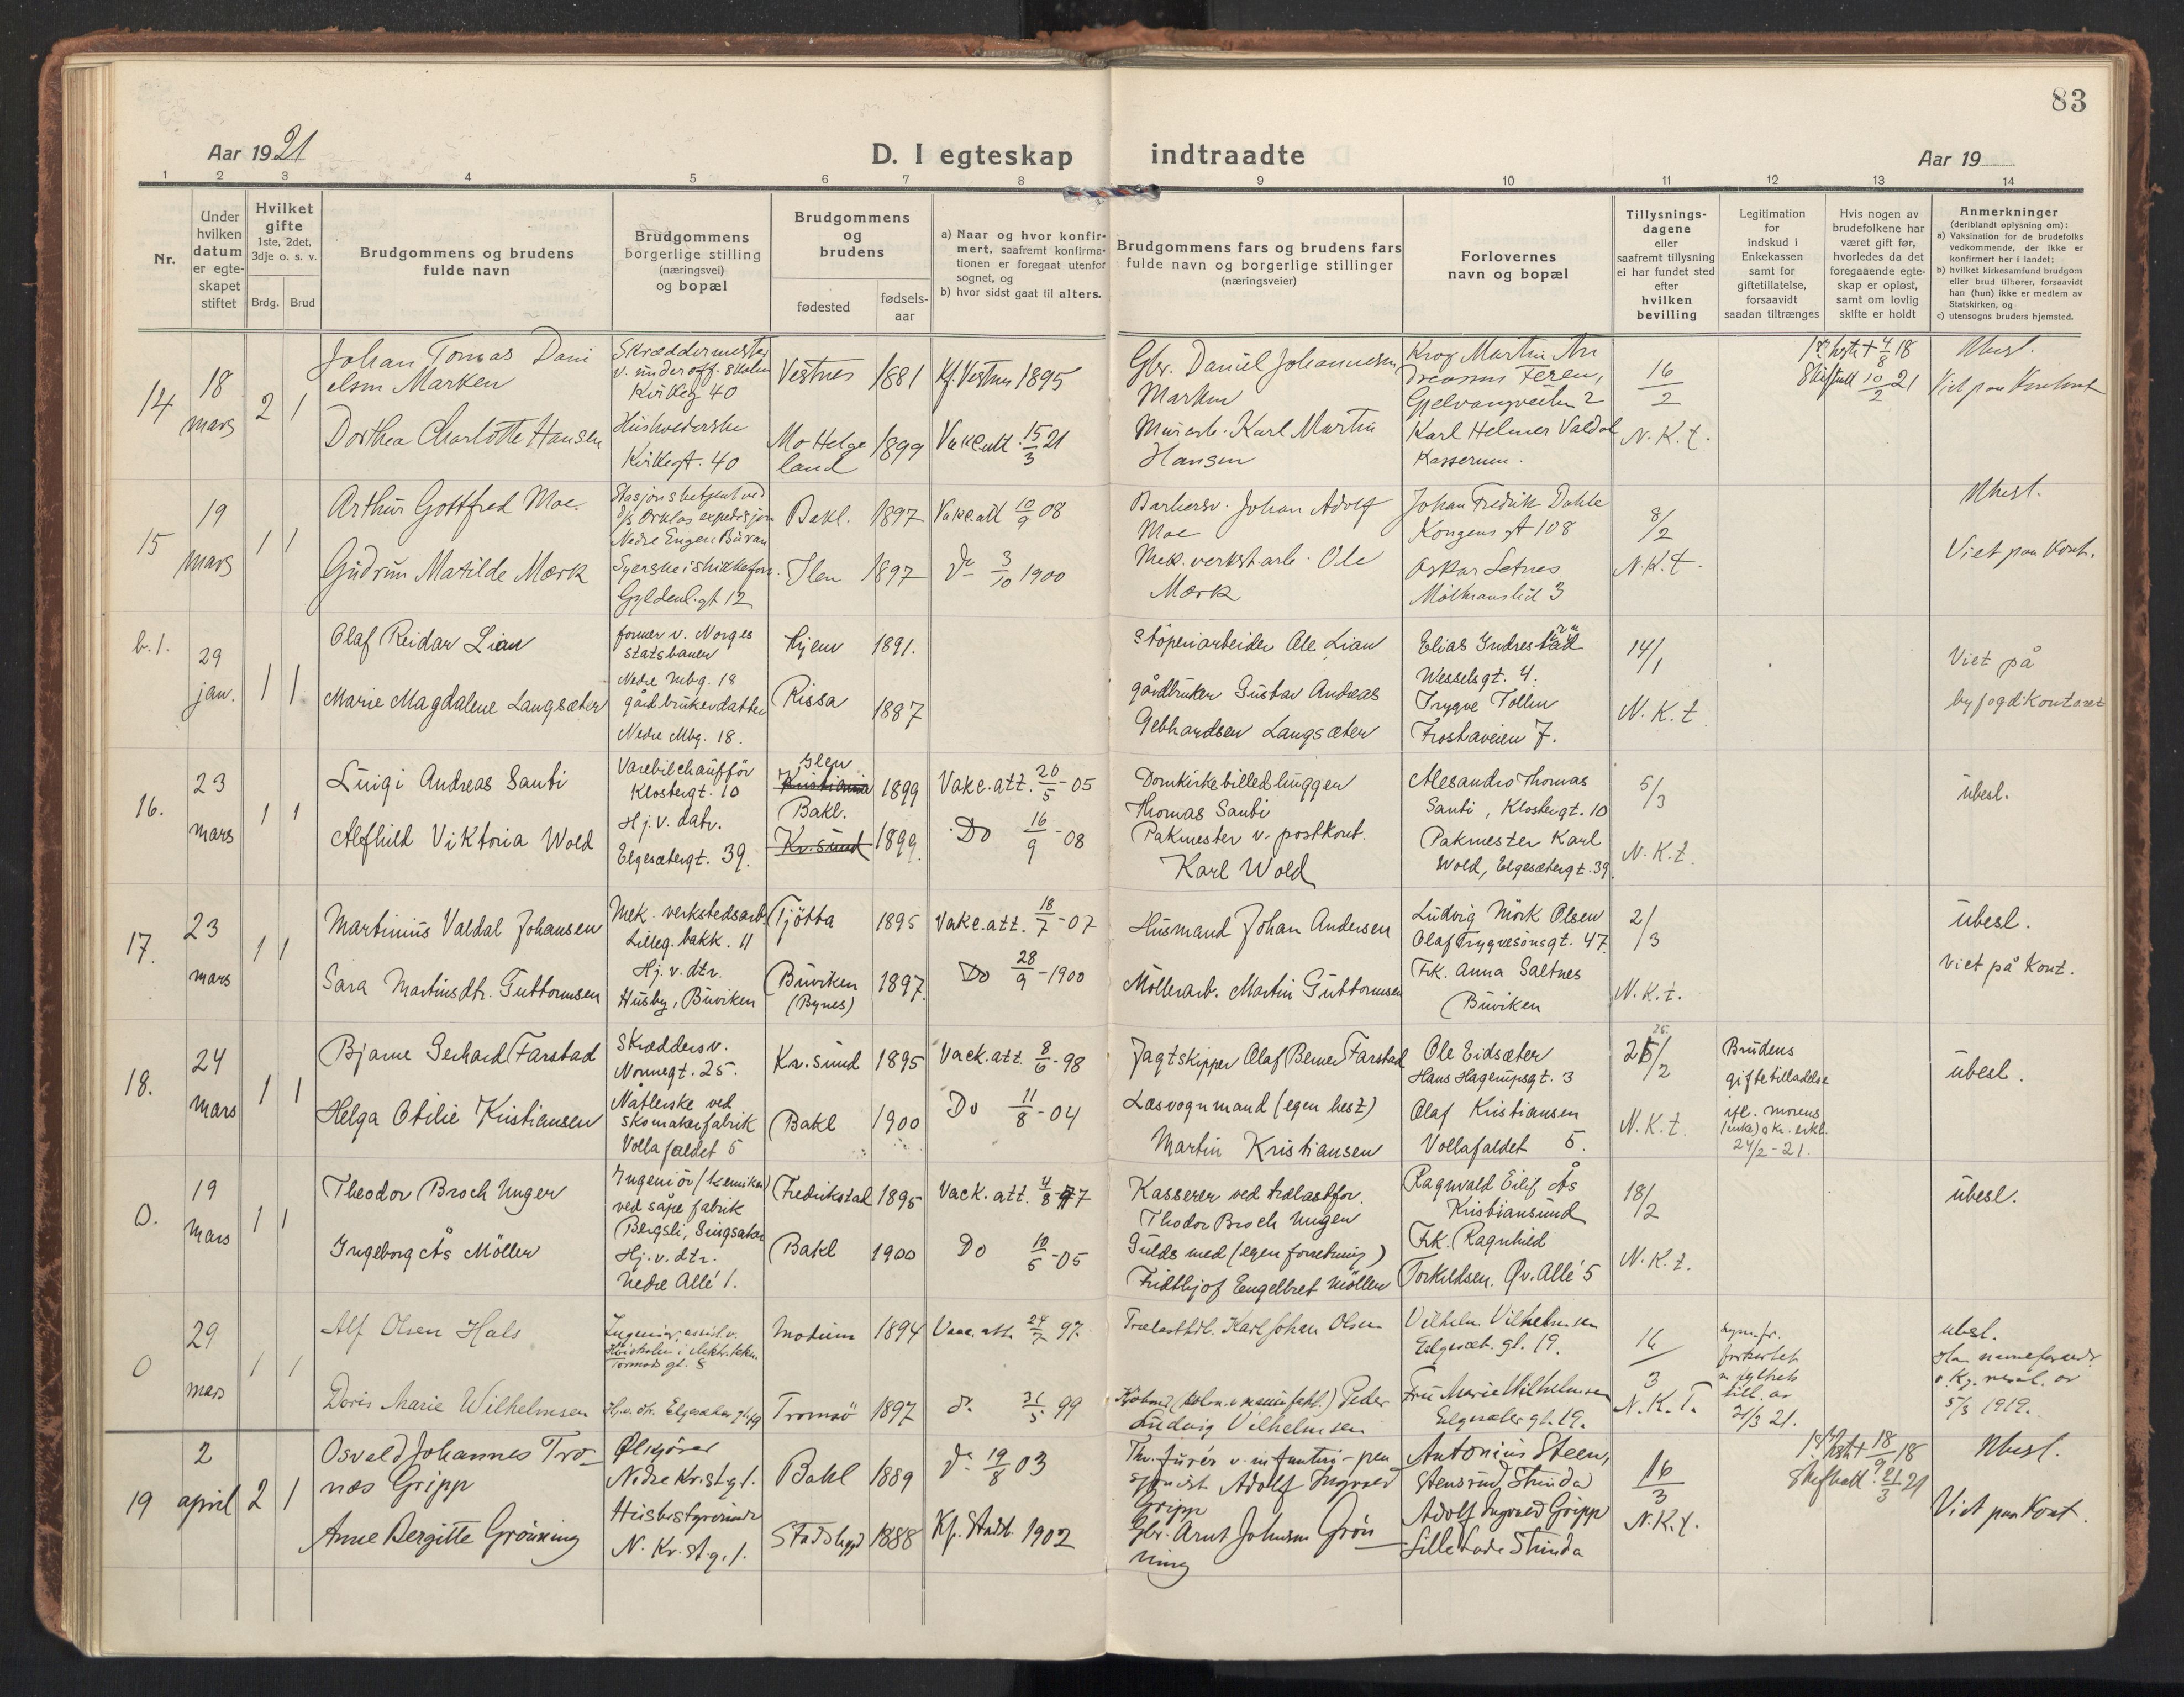 83
Aar 1921
D. I egteskap indtraadte
Aar 19
1 2 3 4 5 6 7 8 9 10 11 12 13 14
Nr.
Under hvilken datum er egte- skapet stiftet
Hvilket gifte 1ste, 2det, 3dje o. s. v.
Brdg. Brud
Brudgommens og brudens fulde navn
Brudgommens borgerlige stilling (næringsvei) og bopæl
Brudgommens og brudens
fødested
fødsels- aar
a) Naar og hvor konfir- mert, saafremt konfirma- tionen er foregaat utenfor sognet, og
b) hvor sidst gaat til alters.
Brudgommens fars og brudens fars fulde navn og borgerlige stillinger (næringsveier)
Forlovernes navn og bopæl
Tillysnings- dagene eller saafremt tillysning ei har fundet sted efter hvilken bevilling
Legitimation for indskud i Enkekassen samt for giftetillatelse, forsaavidt saadan tiltrænges
Hvis nogen av brudefolkene har været gift før, hvorledes da det foregaaende egte- skap er opløst, samt om lovlig skifte er holdt
Anmerkninger (deriblandt oplysning om):
a) Vaksination for de brudefolks vedkommende, der ikke er konfirmert her i landet;
b) hvilket kirkesamfund brudgom eller brud tilhører, forsaavidt han (hun) ikke er medlem av Statskirken, og
c) utensogns bruders hjemsted.
14
18 mars
2 1
Johan Tomas Dani
elsen Marken
Skræddermester
v. underoff. skolen
Kirkeg 40
Vestnes 1881 Kf. Vestnes 1895
Gbr. Daniel Johannesen
Marken
Krog Martin An
dreassen Feren,
16/2
Ubesl.
Dorthea Charlotte Hansen
Kirkegt. 40
Mo Helge
land
1899 Vakc.att 15/3 21
Murerb. Karl Martin
Hansen
Karl Helmer Valdal
N.K.t.
15
19 mars
1 1
Arthur Gottfred Moe.
Stasjonsbetjent ved
d/s Orklas expedisjon
Nedre Engen Buran
Bakl. 1897 Vakc.att 10/9 08
Barbersv. Johan Adolf
Moe
Johan Fredrik Dahle
Kongens gt 108
8/2
Ubesl.
Gudrun Matilde Mørk
Gyldenl.gt 12
Ilen 1897 do 3/10 1900
Mek. verkst.arb. Ole
Mørk
Oskar Setnes
N.K.t.
Viet paa Kont.
b.1.
29 jan.
1 1
Olaf Reidar Lian
former v. Norges
statsbaner
Nedre Mbg. 18
Hjem 1891.
Støperiarbeider Ole Lian
Elias Indrestad
Wesselsgt. 4.
14/1
Viet på
byfogdkontoret
Marie Magdalene Langsæter
gårdbrukerdatter
Nedre Mbg. 18.
Rissa 1887
gårdbruker Gustav Andreas
Gebhardsen Langsæter
Trygve Tollen
Frostaveien 7.
N.K.t.
16.
23 mars
1 1
Luigi Andreas Santi
Varebilchauffør
Klostergt. 10
Ilen
Kristiania
1899 Vakc.att. 20/5-05
Domkirkebilledhugger
Thomas Santi
Alesandro Thomas
Santi, Klostergt. 10
5/3
übesl.
Alfhild Viktoria Wold
Hj.v. datr.
Elgesætergt. 39.
Bakl.
Kr.sund
1899. Do 16/9-08
Pakmester v. postkont.
Karl Wold
Pakmester Karl
Wold, Elgesætergt. 39.
N.K.t.
17.
23 mars
1 1
Martinius Valdal Johansen
Mek. verkstedsarb.
Lilleg. bakk. 11
Tjøtta 1895 Vakc.att. 18/7-07
Husmand Johan Andersen
Ludvig Mørk Olsen
Olaf Trygvesønsgt. 47
2/3
übesl.
Sara Martinsdtr. Guttormsen
Hj.v.dtr.
Husby, Buviken
Buviken
(Bynes)
1897. Do 28/9-1900
Møllerarb. Martin Guttormsen
Frk. Anna Saltnes
Buviken
N.K.t.
Viet på Kont.
18.
24 mars
1 1
Bjarne Gerhard Farstad
Skræddersv.
Nonnegt. 25.
Kr.sund 1895 Vack.att 8/6-98
Jagtskipper Olaf Berner Farstad
Ole Eidsæter
Hans Hagerupsgt. 3
25/2
Brudens
giftetilladelse
übesl.
Helga Otilie Kristiansen
Nåtlerske ved
skomakerfabrik
Vollafaldet 5
Bakl 1900 Do 11/8-04
Læsvognmand (egen hest)
Martin Kristiansen
Olaf Kristiansen
Vollafaldet 5.
N.K.t.
ifl. morens
(enke) skr. erkl.
24/2-21.
0.
19 mars
1 1
Theodor Broch Unger
Ingeniør (kemiker)
ved såpefabrik
Bergsli, Singsaker
Fredrikstad 1895 Vack.att. 4/8 97
Kasserer ved trælastfor.
Thodor Broch Unger
Ragnvald Eilif Ås
Kristiansund
18/2
übesl.
Ingeborg Ås Møller
Hj.v.dtr.
Nedre Allé 1.
Bakl 1900 Do 10/5-05
Guldsmed (egen forretning)
Fridthjof Engelbret Møller
Frk. Ragnhild
Torkildsen. Øv. Allé 5
N.K.t.
0
29 mars
1 1
Alf Olsen Hals
Tormods gt. 8
Modum 1894 Vacc.att. 24/7 97.
Trælasthdl. Karl Johan Olsen
Vilhelm Vilhelmsen
Elgesæt. gt. 19.
16/3
ubesl.
Doris Marie Wilhelmsen
Hj.v. dtr. Elgesæter gt. 19
Tromsø 1897 do 31/5 99
Ludvig Vilhelmsen
Fru Marie Wilhelmsen
Elgesæter gt. 19.
N.K.T.
till. av
21/3 21.
5/3 1919.
19
2 april
2 1
Osvald Johannes Tro
næs Gripp
Ølkjører
Nedre Kr.st g. 1.
Bakl 1889 do 19/8 03
Adolf Ingvald
Gripp
Antonius Steen,
Stensrud Strinda
16/3
Ubesl.
Anne Bergitte Grønning
Husbestyrerinde
N. Kr.st.g. 1.
Stadsbygd 1888 Kf. Stadsb. 1902
Gbr. Arnt Johnsen Grøn
ning
Adolf Ingvald Gripp
Lille Lade Strinda
N.K.t.
Viet paa Kont.